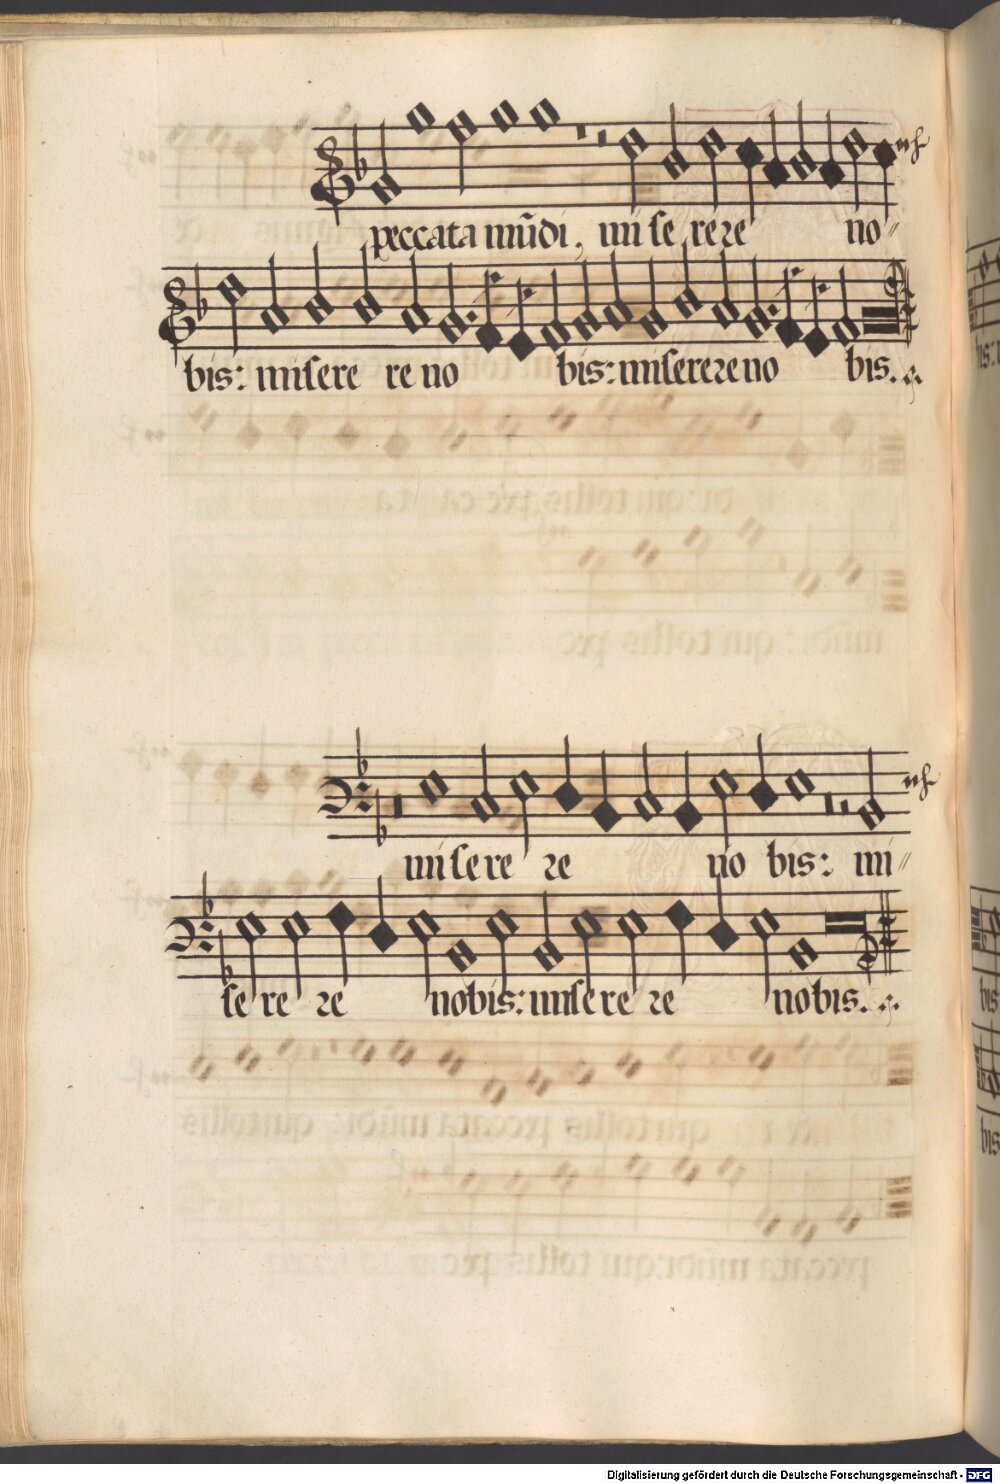 peccata mũdi, mi se rere no
bis: misere re no bis: miserereno bis.
mi se re re no bis: mi
se re re nobis: misere re nobis.
bis
bis
Digitalisierung gefördert durch die Deutsche Forschungsgemeinschaft - DFG